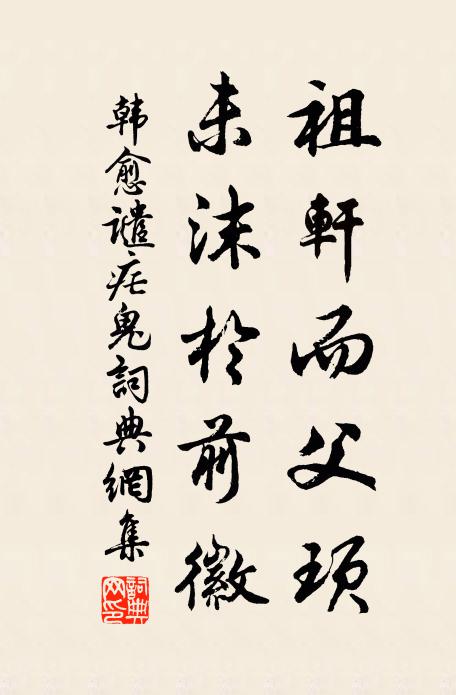 祖軒而父頊
未沬於前徽
韓愈譴瘧鬼詞典網集
詞典网印